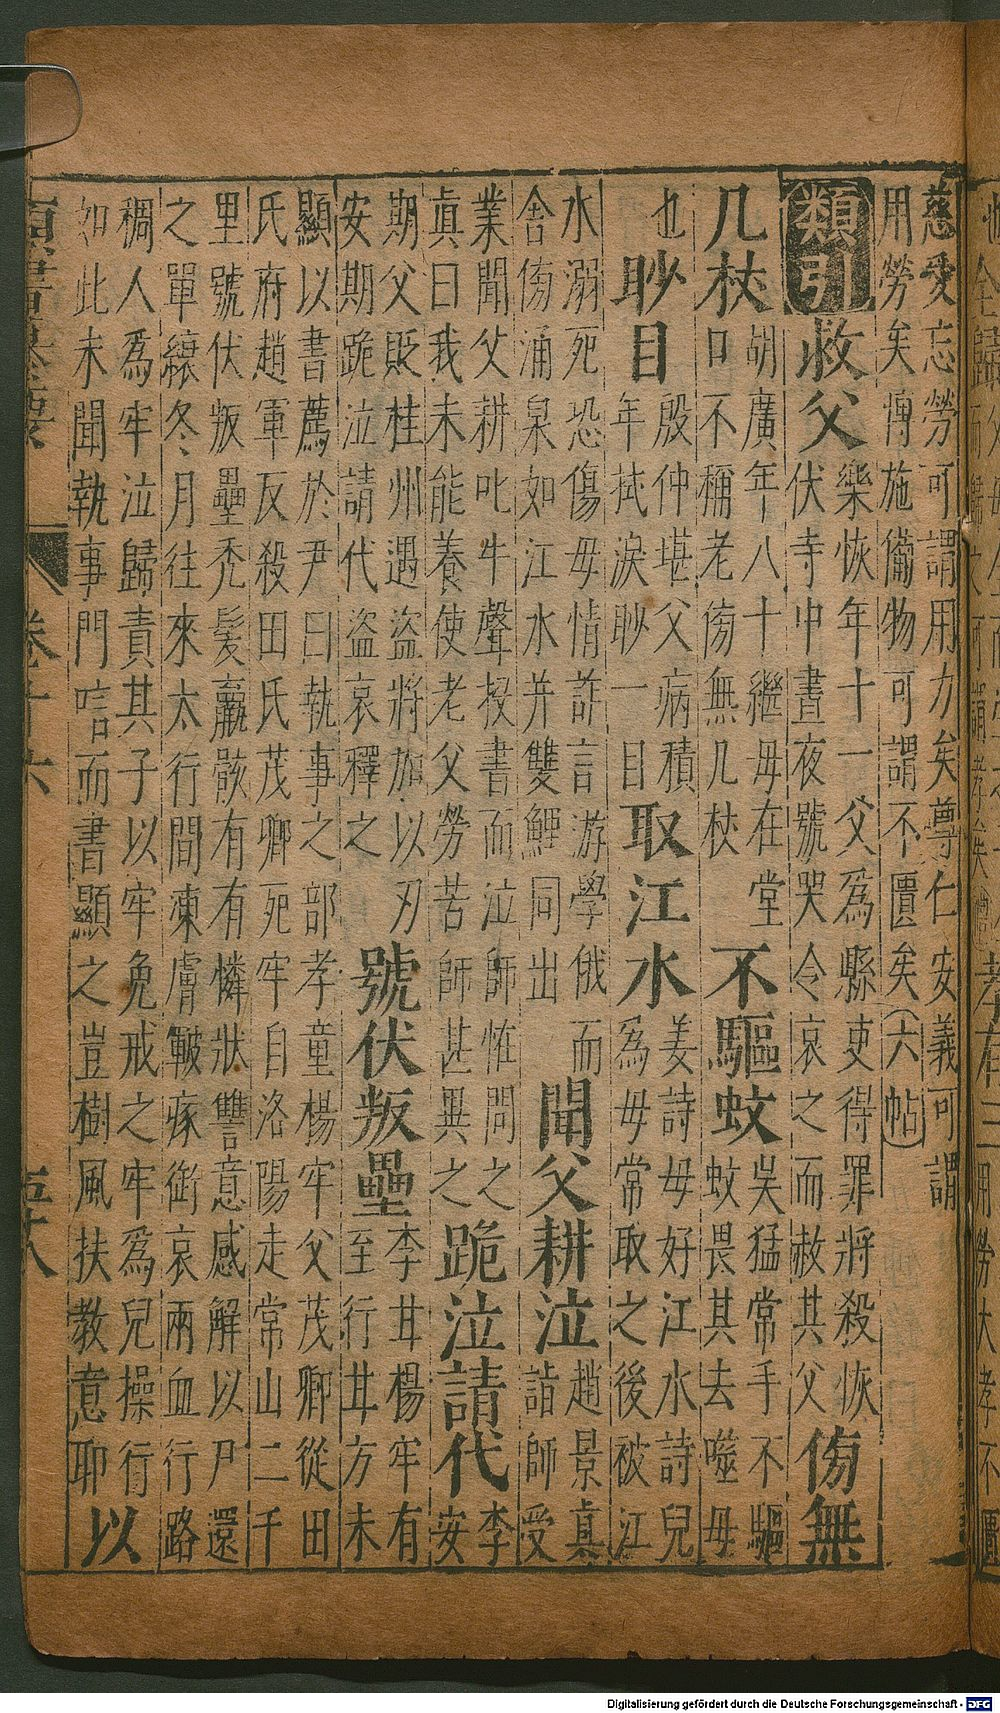 慈愛忘勞可謂用力矣尊仁安義可謂
用勞矣博施備物可謂不匱矣（六帖）
類引
救父
樂恢年十一父爲縣吏得罪將殺恢
伏寺中晝夜號哭令哀之而赦其父
傍無
几杖
胡廣年八十繼母在堂
口不稱老傍無几杖
不驅蚊
吳猛常手不驅
蚊畏其去噬母
也
眇目
殷仲堪父病積
年拭淚眇一目
取江水
姜詩母好江水詩兒
爲母常取之後被江
水溺死恐傷母情詐言游學俄而
舍傍涌泉如江水并雙鯉同出
聞父耕泣
趙景真
詣師受
業聞父耕叱牛聲投書而泣師恠問之
眞曰我未能養使老父勞苦師甚異之
跪泣請代
李
安
期父貶桂州遇盜將加以刃
安期跪泣請代盜哀釋之
號伏叛壘
李甘楊牢有
至行甘方未
顯以書薦於尹曰執事之部孝童楊牢父茂卿從田
氏府趙軍反殺田氏茂卿死牢自洛陽走常山二千
里號伏叛壘禿髪羸骸有有憐狀讐意感解以尸還
之單縗冬月往來太行間凍膚皸瘃銜哀兩血行路
稠人爲牢泣歸責其子以牢免戒之牢爲兒操行
如此未聞執事門唁而書顯之豈樹風扶教意耶
以
卷十六
五十八